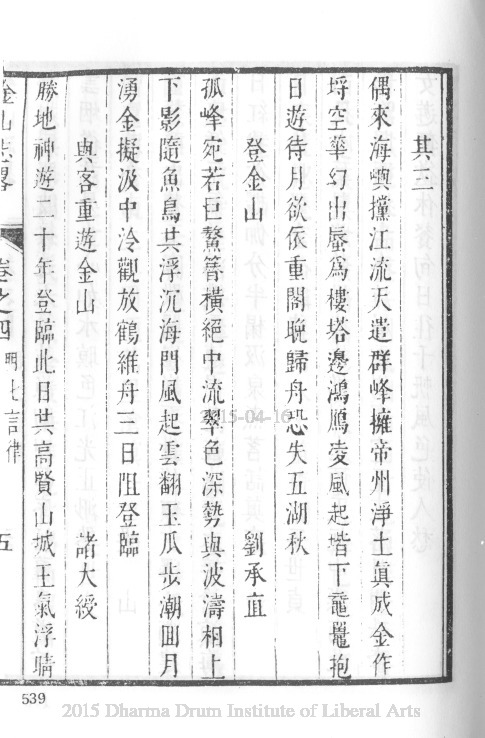 其三
偶來海嶼攩江流天遣群峰擁帝州淨土眞成金作
埒空華幻出蜃爲樓塔邊鴻鴈凌風起堦下黿鼉抱
日遊待月欲依重閣晚歸舟恐失五湖秋
登金山 劉承直
孤峰宛若巨鰲簪橫絕中流翠色深勢與波濤相上
下影隨魚鳥共浮沉海門風起雲翻玉瓜步潮囬月
湧金擬汲中泠觀放鶴維舟三日阻登臨
與客重遊金山 諸大綬
勝地神遊二十年登臨此日共高賢山城王氣浮晴
金山志畧 卷之四 明七言律 五
539
2015-04-16
2015 Dharma Drum Institute of Liberal Arts